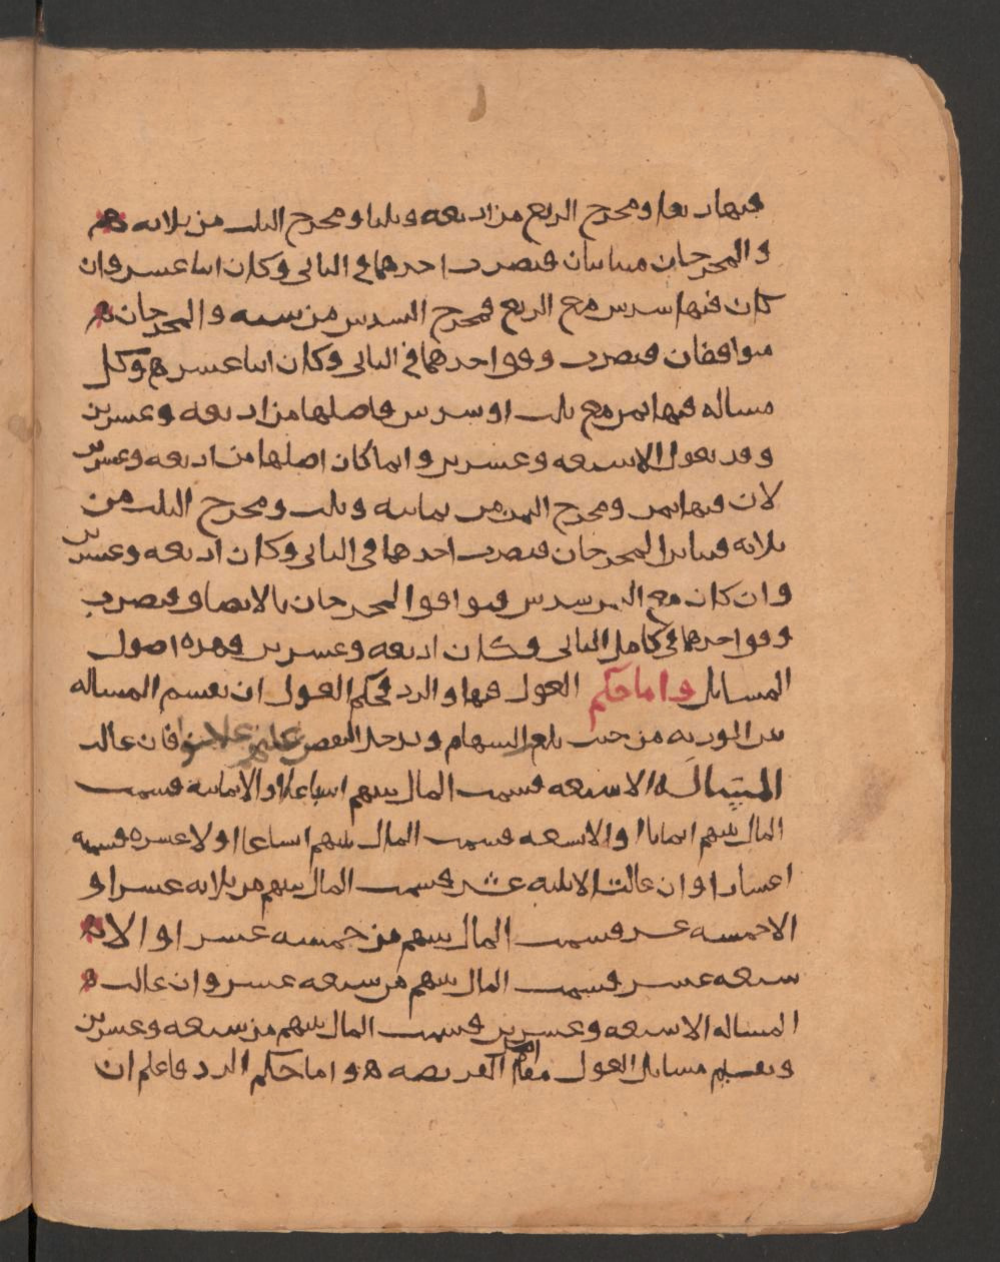 فيها ربعا ومخرج الربع من اربعه وثلثا ومخرج الثلث من ثلاثه
والمخرجان متباينان فتضرب احدهما في الثاني وكان اثنا عشر وان
كان فيها سدس مع الربع فمخرج السدس من سته والمخرجان
متوافقان فتضرب وفق احدهما في الثاني وكان اثنا عشر وكل
مساله فيها ثمن مع ثلث او سدس فاصلها من اربعه وعشرين
وقد تعول الا سبعه وعشرين وانما كان اصلها من اربعه وعشرين
لان فيها ثمن ومخرج الثمن من ثمانيه وثلث ومخرج الثلث من
ثلاثه فتباين المخرجان فتضرب احدهما في الثاني وكان اربعه وعشرين
وان كان مع الثمن سدس فتوافقوا المخرجان بالانصاف فتضرب
وفق احدهما في كامل الثاني وكان اربعه وعشرين فهذه اصول
المسائل واما حكم العول فيها والرد فحكم العول ان تقسم المساله
بين الورثه من حيث بلغ السهام ويدخل النقص عليهم فان عالت
المساله الا سبعه قسمت المال بينهم اسباعا او الا ثمانيه قسمت
المال بينهم اثمانا او الا تسعه قسمت المال بينهم اتساعا او لا عشره قسمته
اعشارا وان عالت الا ثلثه عشر قسمت المال بينهم من ثلاثه عشر او
الا خمسه عشر قسمت المال بينهم من خمسه عشر او الا
سبعه عشر قسمت المال بينهم من سبعه عشر وان عالت
المساله الا سبعه وعشرين قسمت المال بينهم من سبعه وعشرين
وتقسيم مسائل العول مقام اصل الفريضه واما حكم الرد فاعلم ان